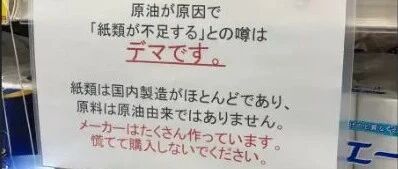 原油が原因で
「紙類が不足する」との噂は
デマです。
紙類は国内製造がほとんどであり、
原料は原油由来ではありません。
メーカーはたくさん作っています。
慌てて購入しないでください。
エー